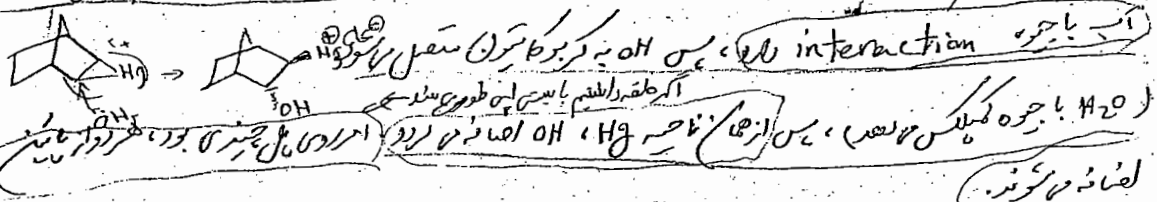 آب با جیوه interaction دارد، پس OH به کربوکاتیون منتقل می‌شود Hg OH
اگر حلقه را ببینیم باید این طوری
(H2O با جیوه کمپلکس می‌دهد)، پس از همان ناحیه Hg، OH اضافه می‌گردد (اگر روی پل چیزی بود، هر دو از پایین
اضافه می‌شوند.)